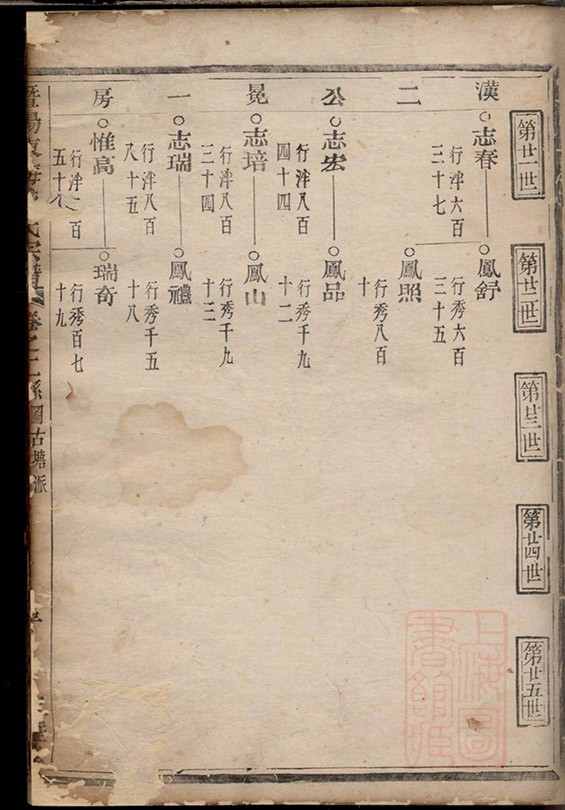 第廿一世
第廿二世
第廿三世
第廿四世
第廿五世
漢二公晃一房
志春
行泮六百三十七
鳳舒
行秀六百三十五
鳳照
行秀八百十
志宏
行泮八百四十四
鳳品
行秀千九十二
志培
行泮八百三十四
鳳山
行秀千九十三
志瑞
行泮八百八十五
鳳禮
行秀千五十八
惟高
行泮 百五十
瑞奇
行秀百七十九
暨陽 氏宗譜 卷之 系圖古塘派
上海圖書館